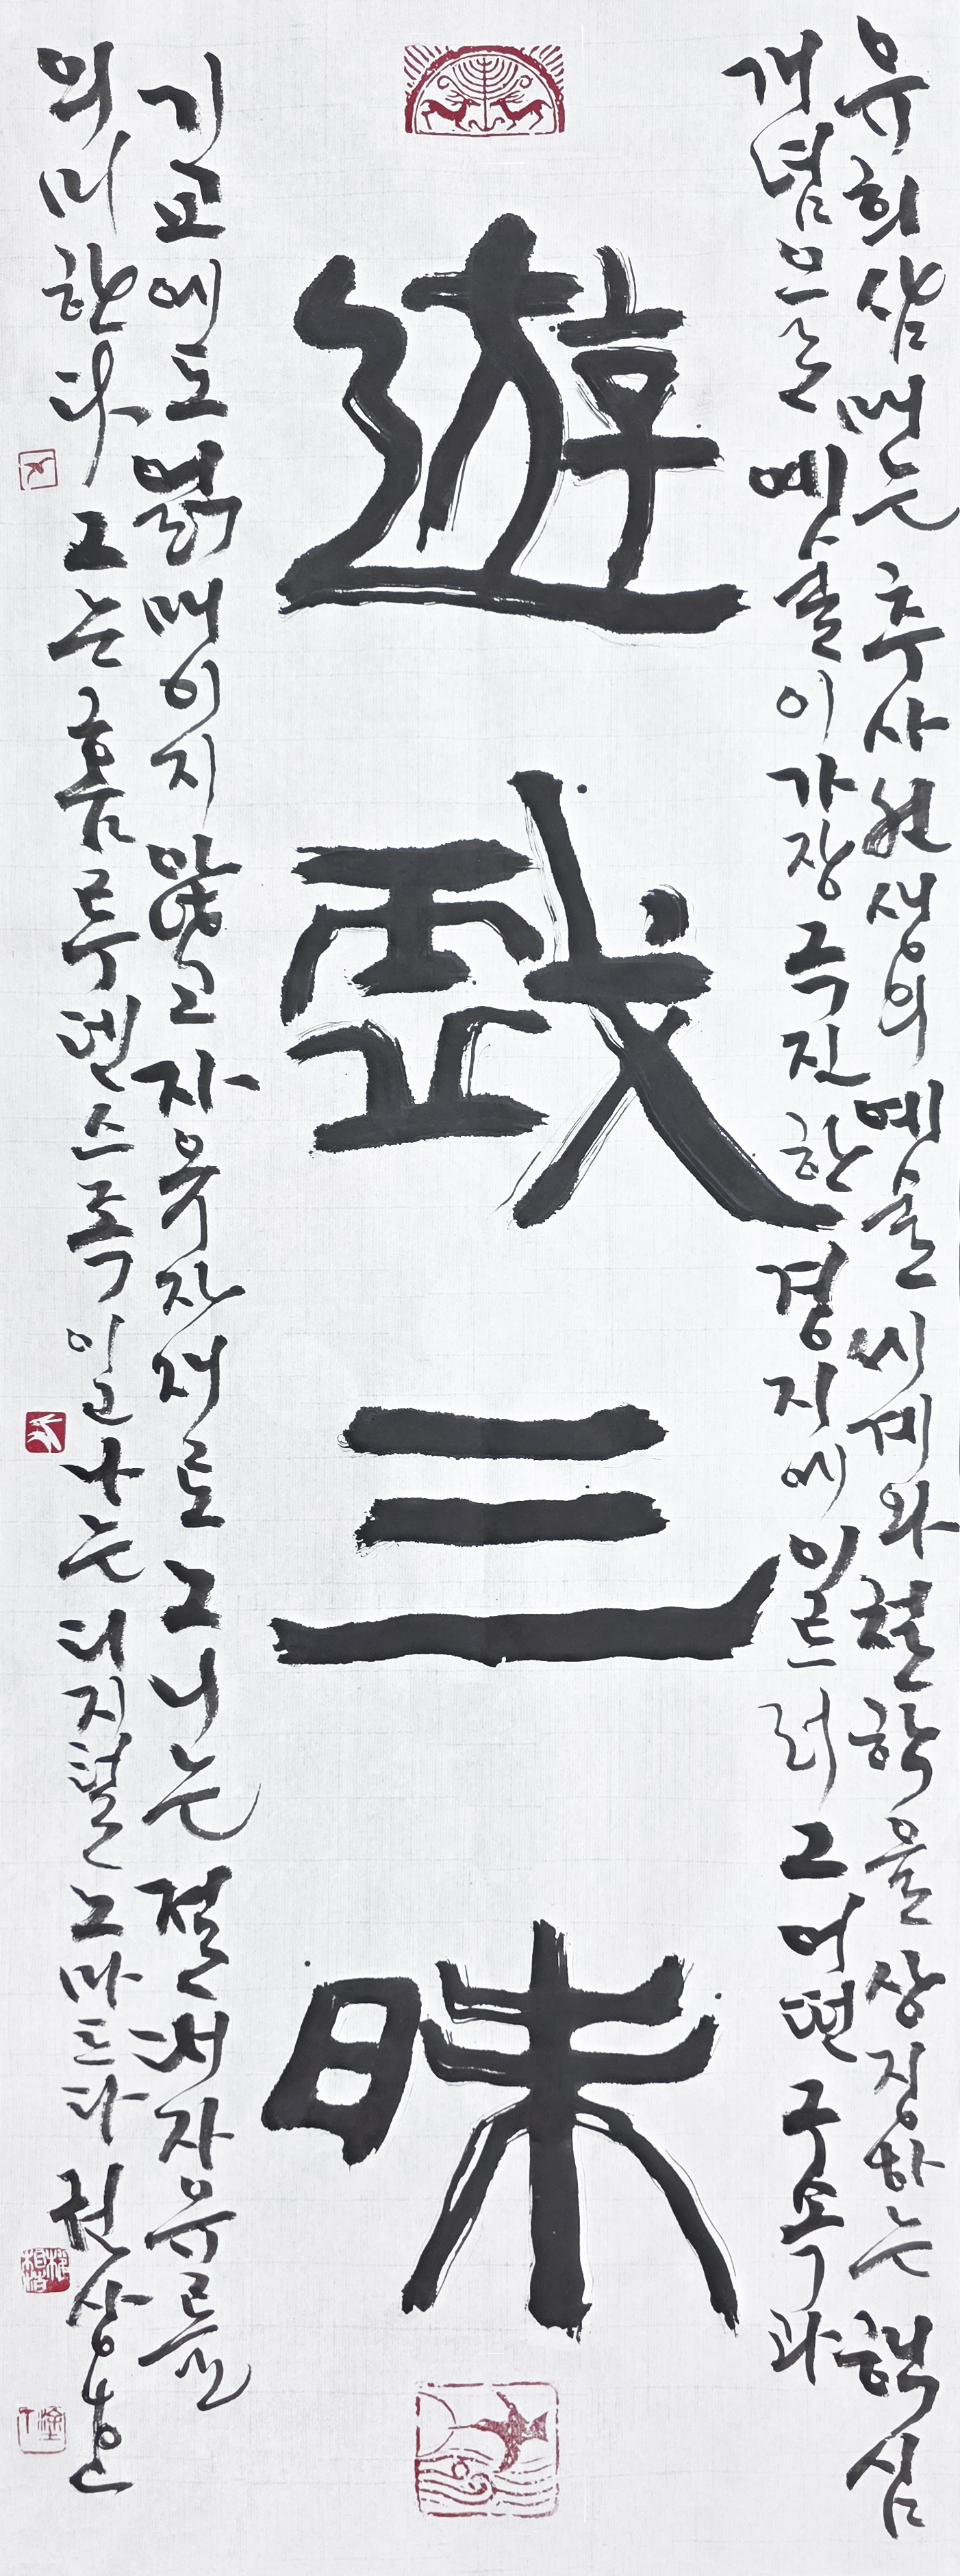 유희삼매는 추사선생의 예술세계와 철학을 상징하는 핵심
개념으로 예술이 가장 극진한 경지에 이르러 그 어떤 구속과
遊戱三昧
기교에도 얽매이지 않고 자유자재로 노니는 절대자유를
의미한다 그는 호모루덴스족이고 나는 디지털노마드다 권상호